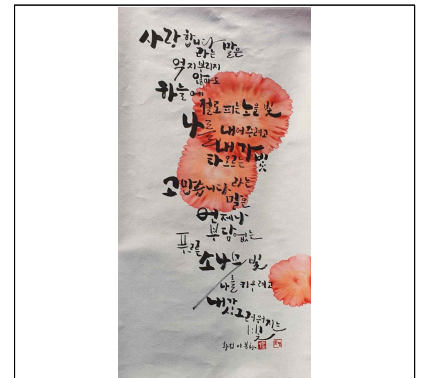 사랑합니다
라는 말은
억지부리지
않아도
하늘에
절로 피는 노을 빛
나를
내어주려고
내가
타오르는 빛
고맙습니다 라는
말은
언제나
부담없는
푸르른
소나무 빛
나를 키우려고
내가
싱그러워지는
빛